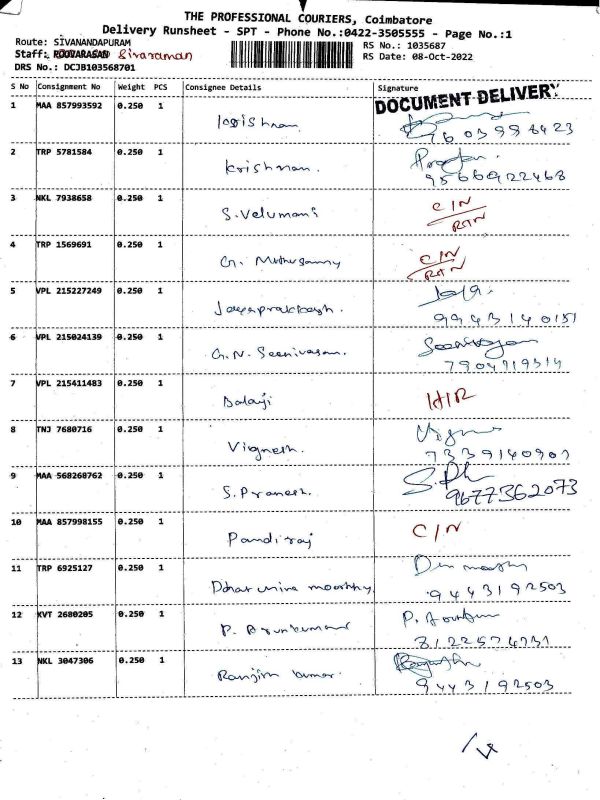 THE PROFESSIONAL COURIERS, Coimbatore
Delivery Runsheet - SPT - Phone No.:0422-3505555 - Page No.:1
Route: SIVANANDAPURAM
RS No.: 1035687
Staff: ROOVARASAN Sivaraman
RS Date: 08-Oct-2022
DRS No.: DCJB103568701
S No Consignment No Weight PCS Consignee Details Signature
DOCUMENT DELIVERY
1 MAA 857993592 0.250 1
2 TRP 5781584 0.250 1 Krishnan.
9566922468
3 NKL 7938658 0.250 1 S.Velumani C/N
RTN
4 TRP 1569691 0.250 1 G. Muthusamy C/N
RTN
5 VPL 215227249 0.250 1 Jayaprakash.
9943140151
6 VPL 215024139 0.250 1 G.N. Seenivasan. Seenivasan
7904919314
7 VPL 215411483 0.250 1 Balaji H/R
8 TNJ 7680716 0.250 1 Vignesh.
7339140901
9 MAA 568268762 0.250 1 S.Pranesh.
9677362073
10 MAA 857998155 0.250 1 Pandiraj C/N
11 TRP 6925127 0.250 1
9443192503
12 KVT 2680205 0.250 1 P. Arunkumar
8122574731
13 NKL 3047306 0.250 1 Ranjith kumar.
9443192503